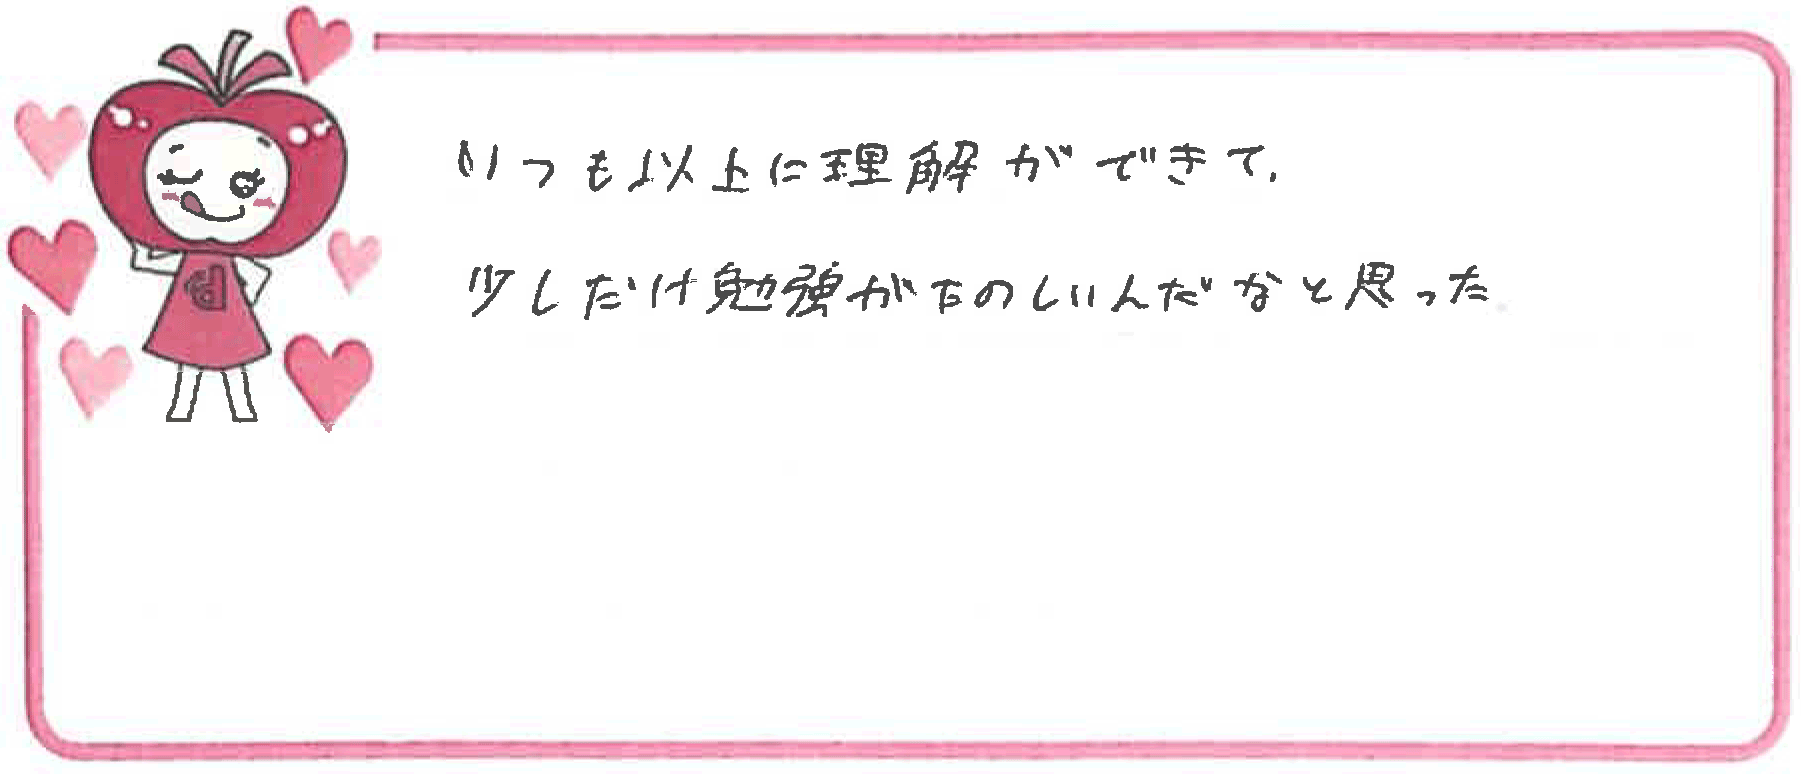 いつも以上に理解ができて、
少しだけ勉強がたのしいんだなと思った